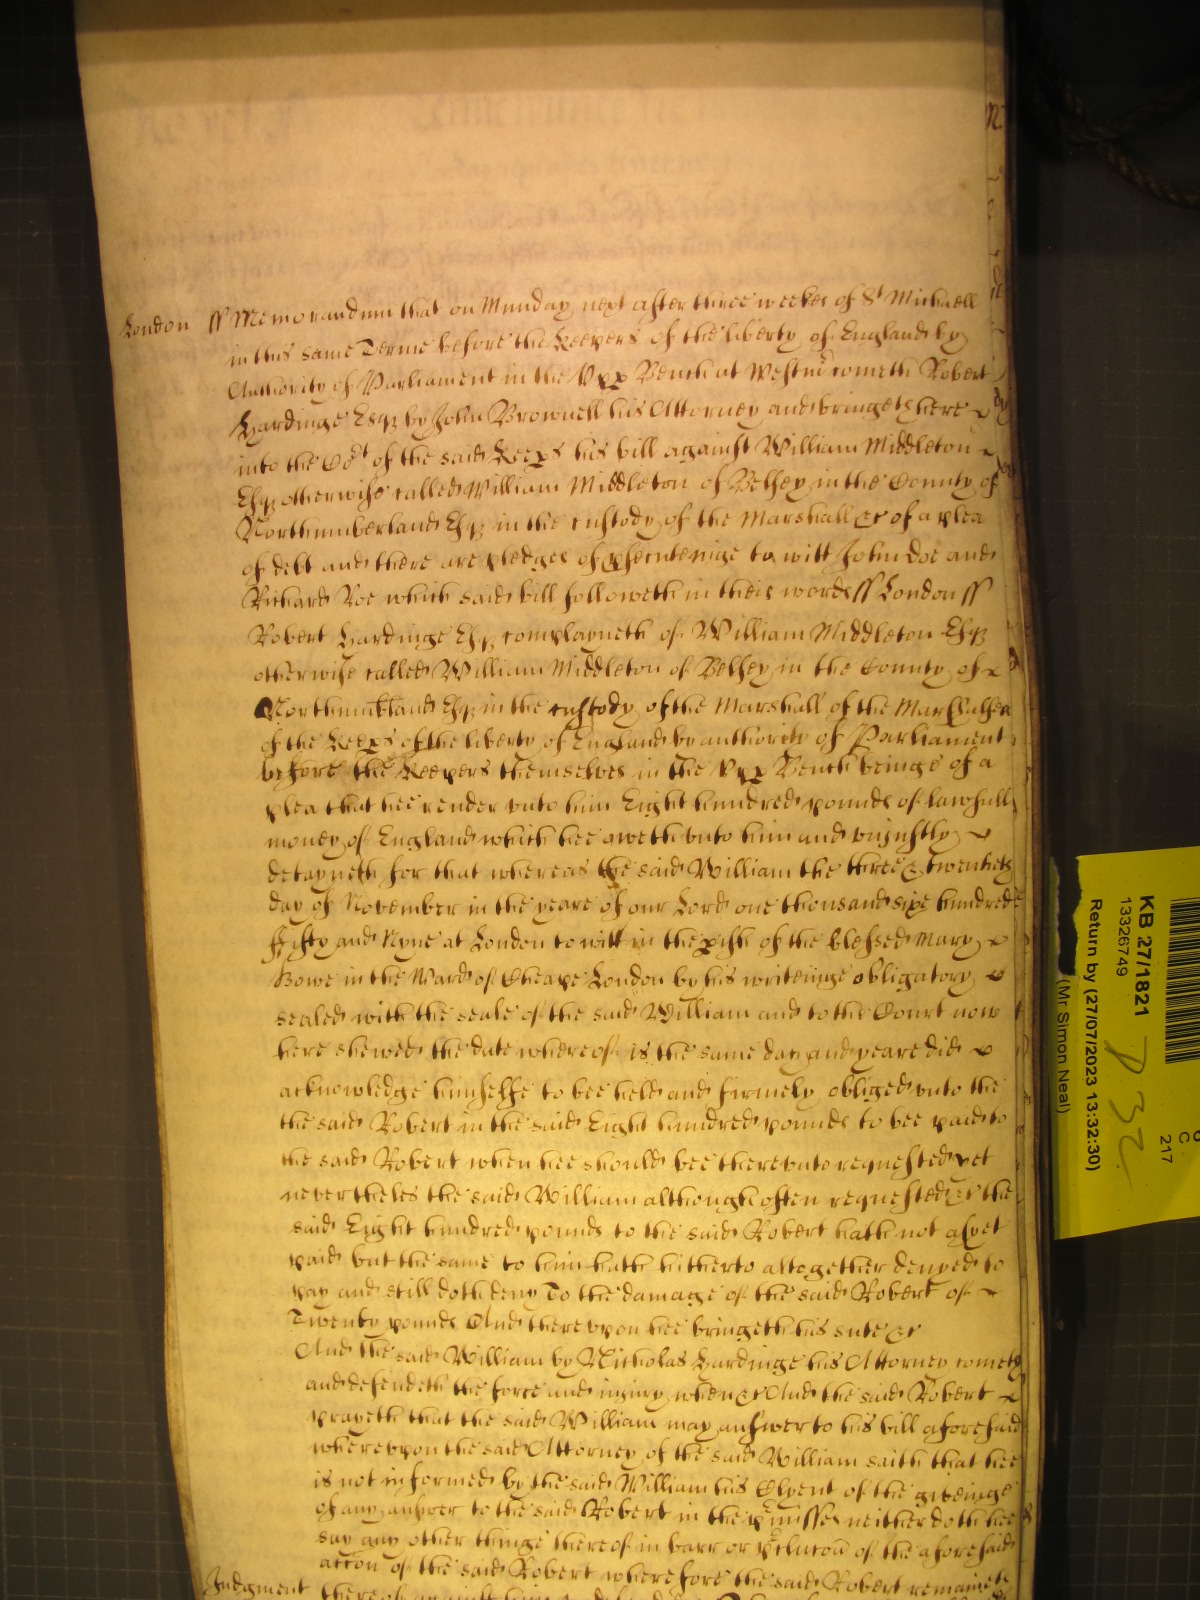 London ss Memorandum that on Munday next after three weekes of St Michaell
in this same Terme before the Keepers of the liberty of England by
Authority of Parliament in the Vpp Bench at Westmr cometh Robert
Hardinge Esqr by John Brownell his Attorney and bringeth here
into the Cort of the said Keeps his bill against William Middleton
Esqr otherwise called William Middleton of Belsey in the County of
Northumberland Esqr in the custody of the Marshall &c of a plea
of debt and there are pledges of psecuteinge to witt John Doe and
Richard Roe which said bill followeth in theis words ss London ss
Robert Hardinge Esqr complayneth of William Middleton Esqr
otherwise called William Middleton of Belsey in the County of
Northumbland Esqr in the custody of the Marshall of the Marshalsea
of the Keeps of the liberty of England by authority of Parliament
before the Keepers themselves in the Vpp Bench beinge of a
plea that hee render vnto him Eight hundred pounds of lawfull
money of England which hee oweth vnto him and vniustly
detayneth for that whereas the said William the three & twentieth
day of November in the yeare of our Lord one thousand sixe hundred
ffifty and Nyne at London to witt in the pish of the blessed Mary
Bowe in the Ward of Cheape London by his writeinge obligatory
sealed with the seale of the said William and to the Court now
here shewed the date whereof is the same day and yeare did
acknowledge himselfe to bee held and firmely obliged vnto the
the said Robert in the said Eight hundred pounds to bee paid to
the said Robert when hee should bee therevnto requested yet
nevertheles the said William although often requested &c the
said Eight hundred pounds to the said Robert hath not as yet
paid but the same to him hath hitherto altogether denyed to
pay and still doth deny To the damage of the said Robert of
Twenty pounds And therevpon hee bringeth his sute &c
And the said William by Nicholas Hardinge his Attorney cometh
and defendeth the force and iniury when &c And the said Robert
prayeth that the said William may answer to his bill aforesaid
wherevpon the said Attorney of the said William saith that hee
is not informed by the said William his Clyent of the giveinge
of any answer to the said Robert in the pmisses neither doth hee
say any other thinge thereof in barr or pclucon of the aforesaid
accon of the said Robert wherefore the said Robert remaineth
Judgment thereof against him
KB 27/1821
13326749
Return by (27/07/2023 13:32:30)
(Mr Simon Neal)
217